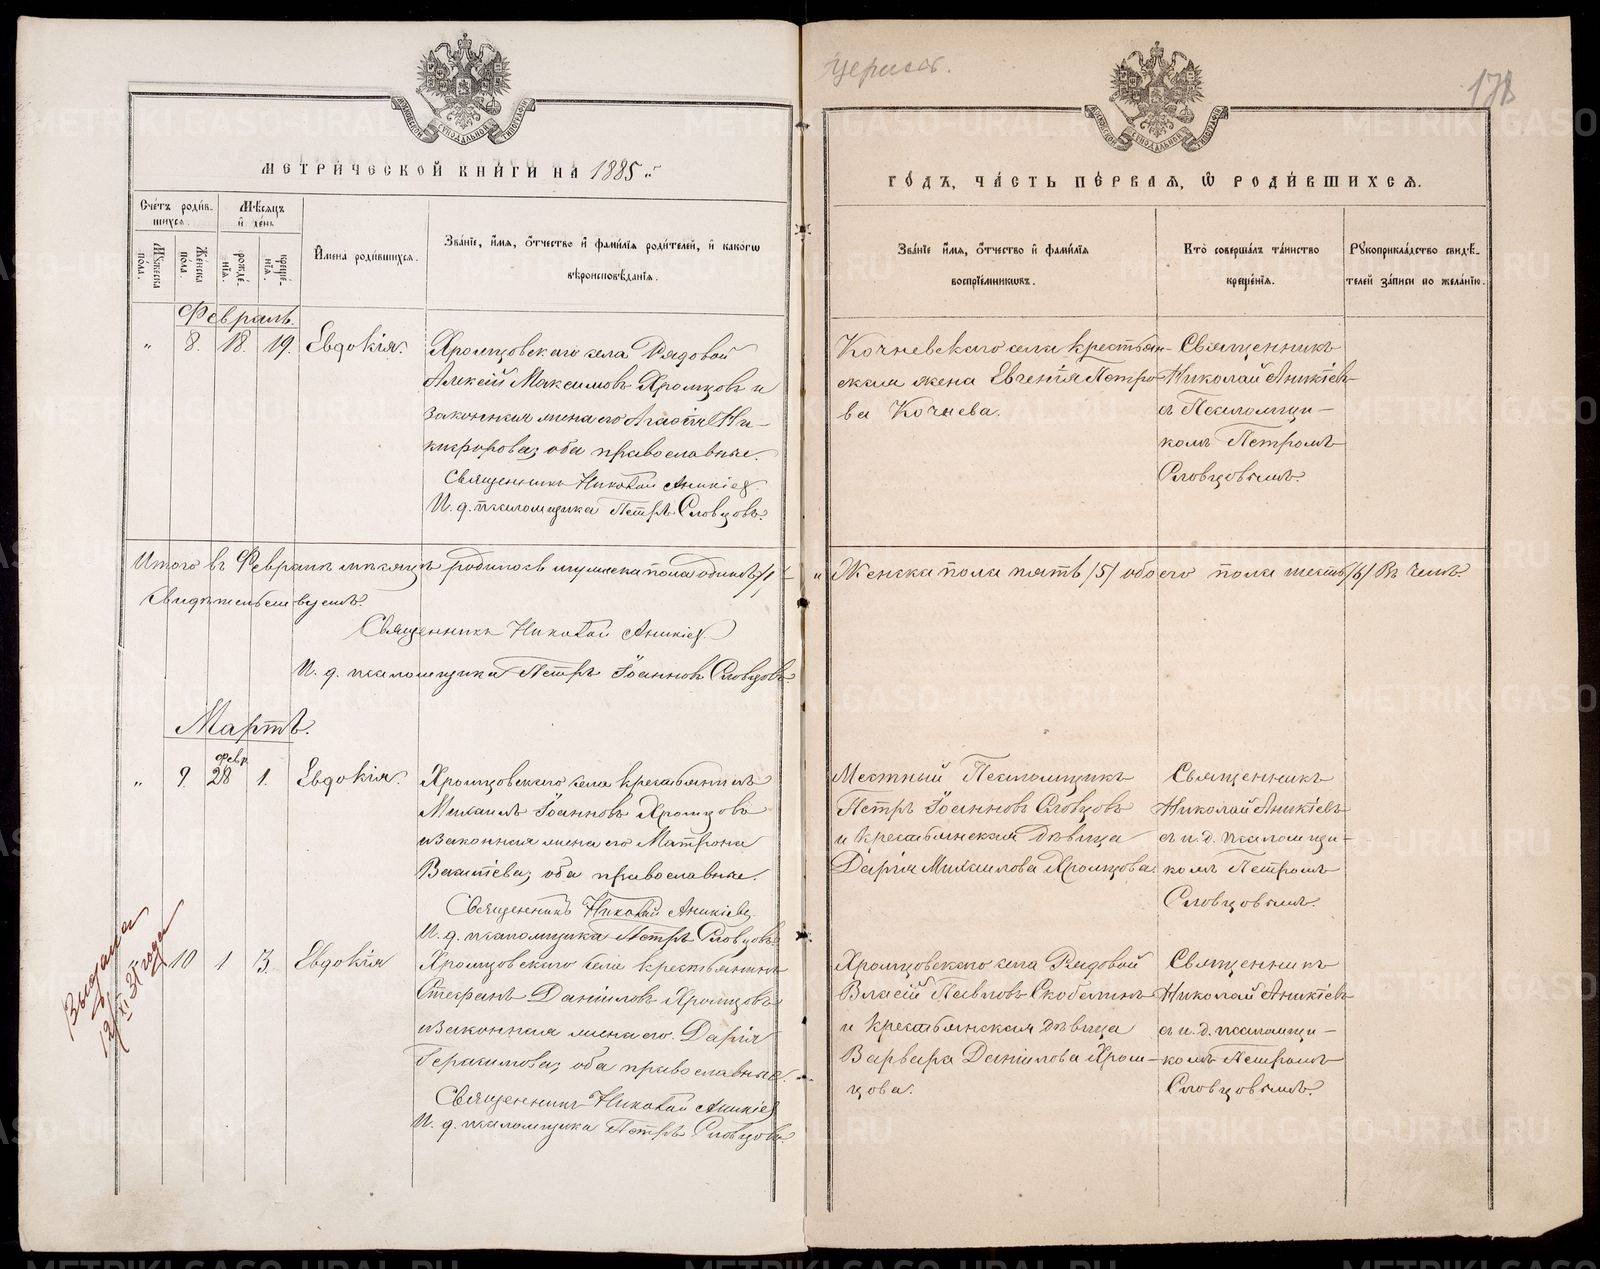 МЕТРИЧЕСКОЙ КНИГИ НА 1885
Счетъ родив-
шихся.
Мѣсяцъ
и день
Мужеска
пола.
Женска
пола.
рожде-
нія.
креще-
нія.
Имена родившихся.
Званіе, имя, отчество и фамилія родителей, и какого
вѣроисповѣданія.
Февраль.
„ 8. 18. 19. Евдокія.
Хромцовскаго села Рядовой
Алексій Максимовъ Хромцовъ и
законная жена его Агаѳія Ни-
кифорова; оба православные.
Священникъ Николай Аникіев
И. д. псаломщика Петръ Словцовъ.
Итого въ Февралѣ мѣсяцѣ родилось мужеска пола одинъ /1/
свидѣтельствуемъ.
Священникъ Николай Аникіев
И. д. псаломщика Петръ Іоанновъ Словцовъ.
Мартъ.
„ 9. Февр. 28 1. Евдокія.
Хромцовскаго села крестьянинъ
Михаилъ Іоанновъ Хромцовъ
и законная жена его Матрона
оба православные.
Священникъ Николай Аникіевъ
И. д. псаломщика Петръ Словцовъ.
Выдана
12/XI 31 года
10 1 3. Евдокія
Хромцовскаго села крестьянинъ
Стефанъ Даніиловъ Хромцовъ
и законная жена его Дарія
Герасимова; оба православные.
Священникъ Николай Аникіев
И. д. псаломщика Петръ Словцовъ.
178
ГОДЪ, ЧАСТЬ ПЕРВАЯ, Ѡ РОДИВШИХСЯ.
Званіе имя, отчество и фамилія
воспріемниковъ.
Кто совершалъ таинство
крещенія.
Рукоприкладство свидѣ-
телей записи по желанію.
Кочневскаго села крестьян-
ская жена Евгенія Петро-
ва Кочнева.
Священникъ
Николай Аникіевъ
съ Псаломщи-
комъ Петромъ
Словцовымъ.
„ Женска пола пять /5/ обоего пола шесть /6/ Въ чемъ
Местный Псаломщикъ
Петръ Іоанновъ Словцовъ
и крестьянская дѣвица
Дарія Михаилова Хромцова.
Священникъ
Николай Аникіевъ
съ и. д. псаломщи-
комъ Петромъ
Словцовымъ.
Хромцовскаго села Рядовой
Власій Павловъ Скобелинъ
и крестьянская дѣвица
Варвара Даніилова Хром-
цова.
Священникъ
Николай Аникіевъ
съ и. д. псаломщи-
комъ Петромъ
Словцовымъ.
METRIKI.GASO-URAL.RU